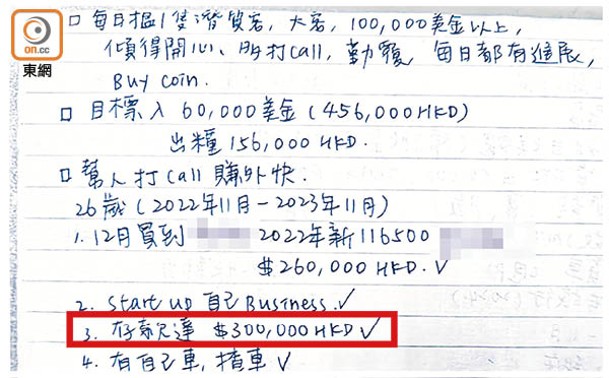 on.cc
東網
□ 每日搵1隻優質客, 大客, 100,000美金以上,
傾得開心、多打call, 勤覆, 每日都有進展,
Buy coin.
□ 目標入 60,000美金 (456,000HKD)
出糧 156,000 HKD.
□ 幫人打call賺外快.
26歲 (2022年11月-2023年11月)
1. 12月買到 2022年新116500
$260,000 HKD. ✓
2. Start up 自己Business. ✓
3. 存款 達 $300,000HKD ✓
4. 有自己車, 揸車 ✓